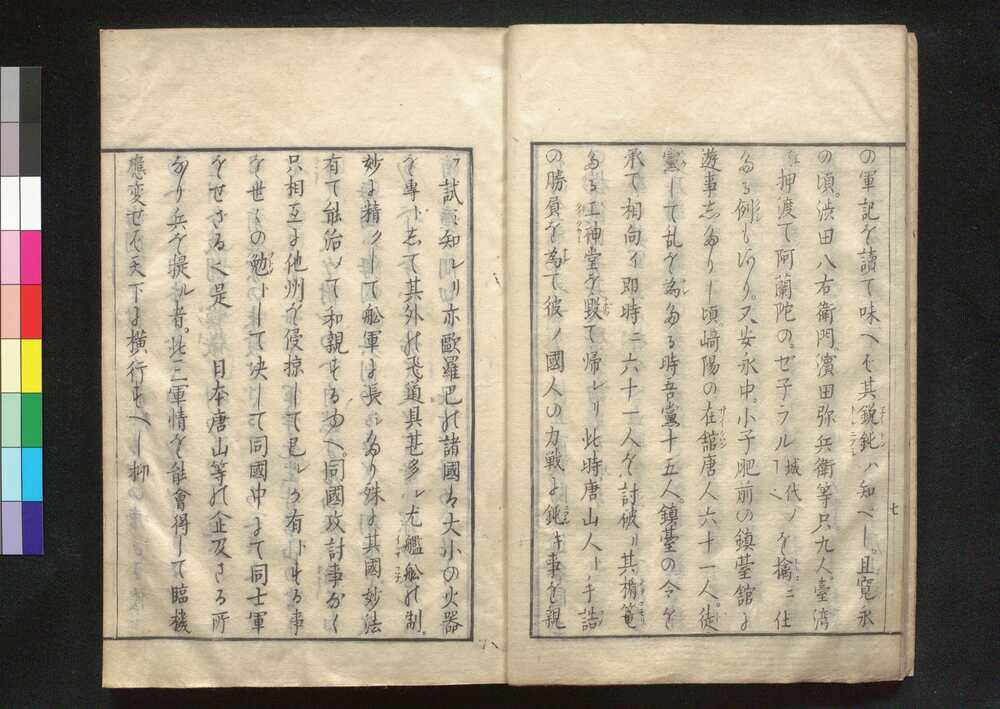 の軍記を讀て味へば其鋭鈍ハ知べし。且寛永
の頃。渋田八右衛門濱田弥兵衛等只九人。臺湾
に押渡て阿蘭陀の。ゼ子ラル 城代ノコヘ を擒ニ仕
たる例もあり。又安永中。小子肥前の鎮臺舘に
遊事志たりし頃﨑陽の在舘唐人六十一人。徒
黨して乱を為たる時吾黨十五人。鎮臺の令を
承て相向イ即時ニ六十一人を討破リ其楯篭
たる工神堂を毀て帰レリ此時唐山人ト手詰
の勝負を為て彼ノ國人の力戦に鈍キ事を親
ク試ミ知レリ亦歐羅巴の諸國は大小の火器
を専トして其外の飛道具甚多シ尤艦舩の制。
妙に精クして舩軍に長シたり殊に其國妙法
有て能治メて和親する故へ。同國攻討事なく
只相互に他州を侵掠して己レが有トする事
を世々の勉トして决して同國中にて同士軍
をせざる也是 日本唐山等の企及さる所
なり兵を提ル者。此三軍情を能會得して臨機
應変せば天下に横行すべし抑
七
八